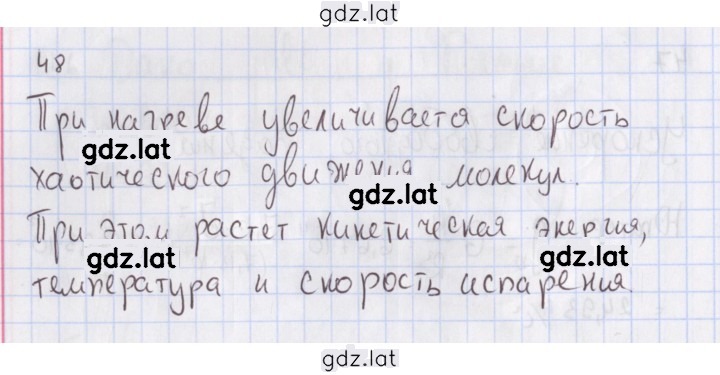 gdz.lat
48
При нагреве увеличивается скорость
gdz.lat
хаотического движения молекул.
gdz.lat
При этом растет кинетическая энергия,
gdz.lat gdz.lat
температура и скорость испарения.
gdz.lat